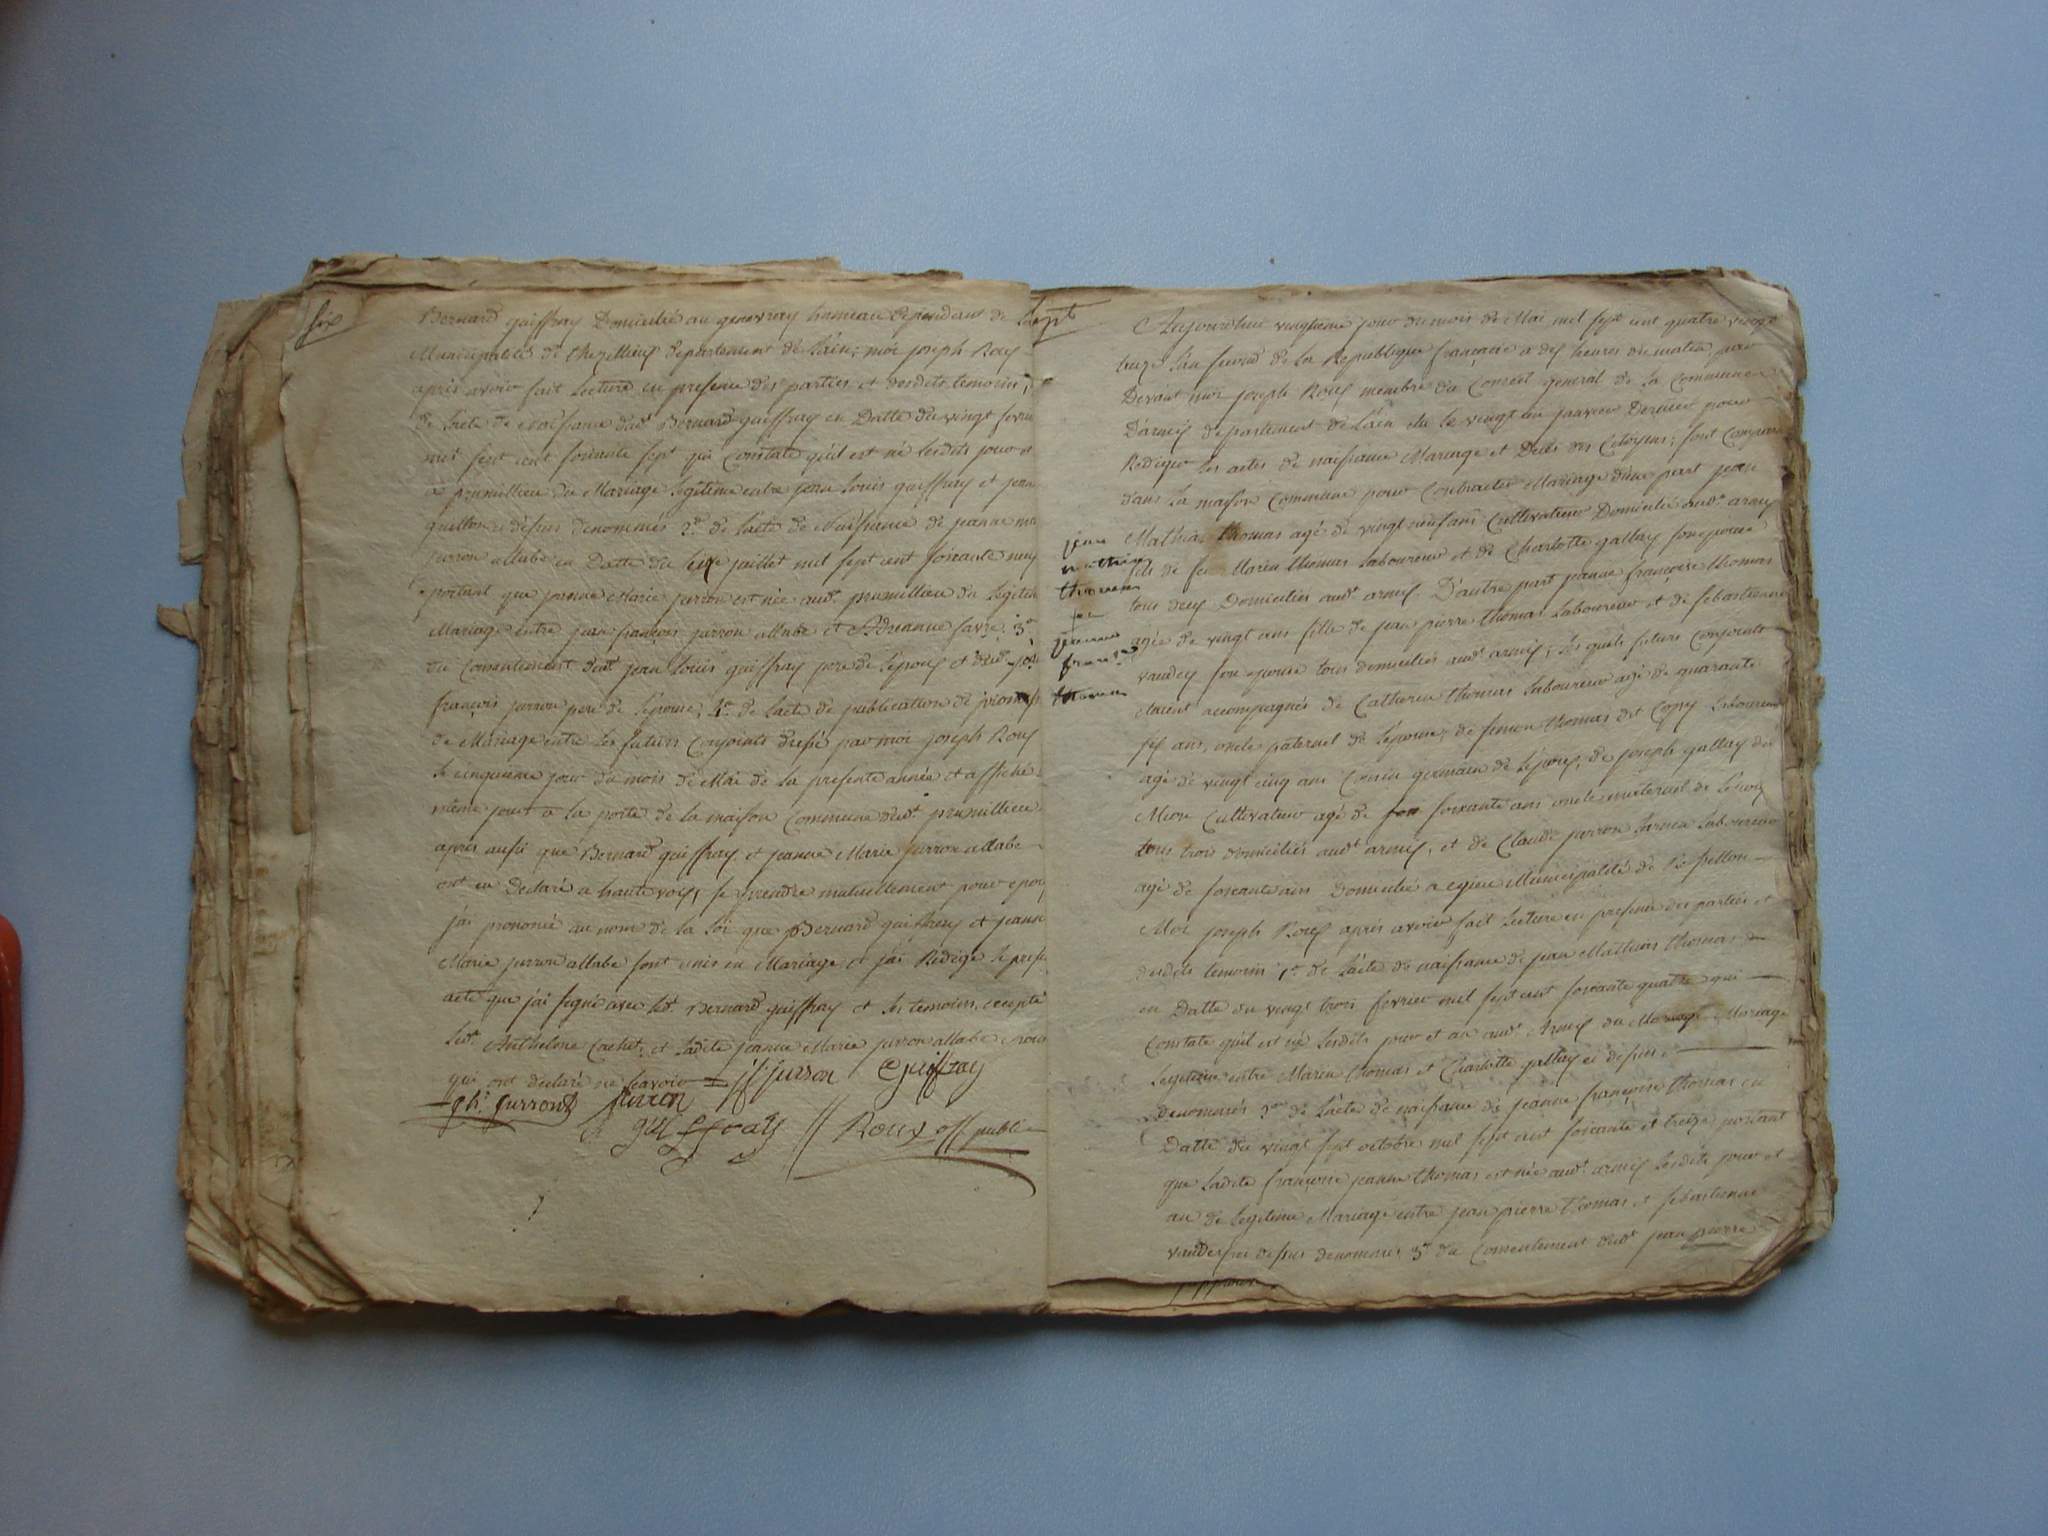 six
Bernard guiffray Domicilié au genevray hameau dependant de la
Municipalité de thezillieu departement de Lain; moi joseph Roux
après avoir fait Lecture en presence des parties et desdits temoins,
de Lacte de Naissance dudt Bernard guiffray en Datte du vingt fevrier
mil sept cent soixante sept qui Constate quil est né lesdits jour et
a prumillieu du Mariage Legitime entre jean Louis guiffray et jeanne
guillon ci dessus denommés 2o. de Lacte de Naissance de jeanne ma
jurron allabe en Datte du seize juillet mil sept cent soixante neuf
portant que jeanne Marie jurron est née audt. prumillieu du Legitime
Mariage entre jean françois jurron allabe et Adrianne favre; 3o
du Consentement dudt jean Louis guiffray pere de Lepoux et dudt. jean
françois jurron pere de Lepouse, 4o de Lacte de publication de promesse
de Mariage entre les futurs Conjoints dressé par moi joseph Roux
le cinquieme jour du mois de Mai de la presente année et affiché
même jour a la porte de la maison Commune dudt prumillieu
apres aussi que Bernard guiffray et jeanne Marie jurron allabe
ont eu Declaré a haute voix, se prendre mutuellement pour epoux
j'ai prononcé au nom de la Loi que Bernard guiffray et jeanne
Marie jurron allabe sont unis en Mariage et j'ai Redigé le present
acte que j'ai signé avec ledt. Bernard guiffray et les temoins, excepté
ledt. Anthelme et Ladite jeanne Marie jurron allabe
qui ont declaré ne scavoir jf jurron Guiffray
jurront jurron
guiffray Roux off publi
sept
Aujourdhui vingtieme jour du mois de Mai mil sept cent quatre vingt
treize Lan second de la Republique française a dix heures du matin par
Devant moi joseph Roux membre du Conseil general de la Commune
Darmix departement de Lain elu le vingt un janvier dernier pour
Rediger les actes de naissance Mariage et Decès des Citoyens; sont Comparu
dans la maison Commune pour Contracter Mariage dune part jean
Mathias thomas agé de vingt neuf ans Cultivateur Domicilié audt. armix
fils de feu Marin thomas Laboureur et de Charlotte gallay son epouse
tous deux Domiciliés audt armix. D'autre part jeanne françoise thomas
agée de vingt ans fille de jean pierre thomas Laboureur et de Sebastienne
son epouse tous domiciliés audt armix; Lesquels futurs Conjoints
etaient accompagnés de Catherin thomas Laboureur agé de quarante
six ans, oncle paternel de Lepouse, de simon thomas dit Laboureur
agé de vingt cinq ans Cousin germain de Lepoux, de joseph gallay dit
Mion Cultivateur agé de soixante ans oncle maternel de Lepoux
tous trois domiciliés audt armix, et de Claude jurron Laboureur
agé de soixante ans Domicilié a egieu Municipalité de
Moi joseph Roux après avoir fait Lecture en presence des parties et
desdits temoins 1o. de Lacte de naissance de jean Mathias thomas
en Datte du vingt trois fevrier mil sept cent soixante quatre qui
Constate quil est né lesdits jour et an audt. Armix du Mariage Mariage
Legitime entre Marin thomas et Charlotte gallay ci dessus
Denommés 2o de Lacte de naissance de jeanne françoise thomas en
Datte du vingt sept octobre mil sept cent soixante et treize portant
que ladite françoise jeanne thomas est née audt. armix lesdits jour et
an de Legitime Mariage entre jean pierre thomas et sebastienne
ci dessus denommés 3o du Consentement dudt jean pierre
jean
mathias
thomas
et
jeanne
françoise
thomas